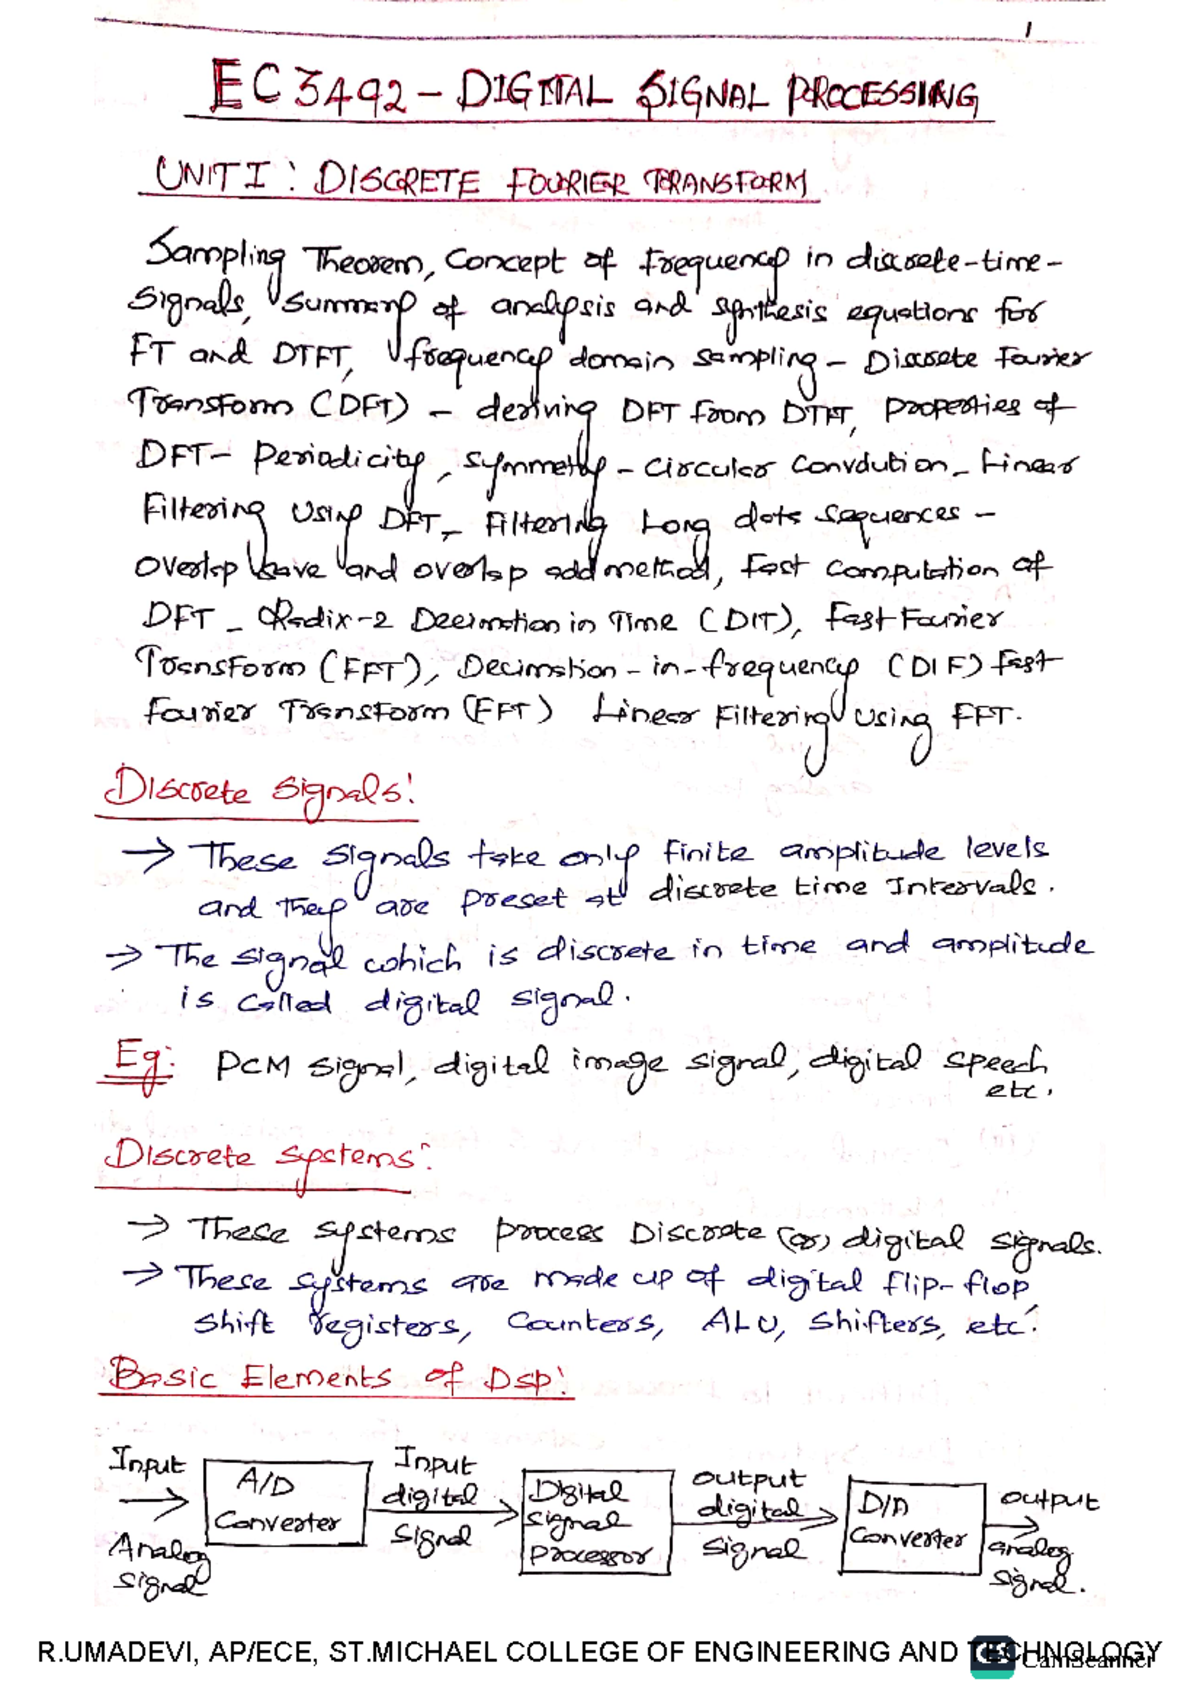 1
EC3492 - DIGITAL SIGNAL PROCESSING
UNIT I : DISCRETE FOURIER TRANSFORM
Sampling Theorem, Concept of frequency in discrete-time-
Signals, Summary of analysis and synthesis equations for
FT and DTFT, frequency domain sampling - Discrete Fourier
Transform (DFT) - deriving DFT from DTFT, Properties of
DFT - Periodicity, Symmetry - Circular Convolution - Linear
Filtering Using DFT - Filtering Long data sequences -
Overlap save and overlap add method, Fast computation of
DFT - Radix-2 Decimation in Time (DIT), Fast Fourier
Transform (FFT), Decimation-in-frequency (DIF) Fast
Fourier Transform (FFT) Linear Filtering using FFT.
Discrete Signals:
→ These Signals take only finite amplitude levels
and they are preset at discrete time Intervals.
→ The signal which is discrete in time and amplitude
is called digital signal.
Eg: PCM signal, digital image signal, digital speech
etc.
Discrete systems:
→ These systems process Discrete (or) digital signals.
→ These systems are made up of digital flip-flop
shift registers, Counters, ALU, Shifters, etc.
Basic Elements of Dsp:
Input
Analog
signal
A/D
Converter
Input
digital
signal
Digital
signal
processor
output
digital
signal
D/A
Converter
output
analog
signal.
R.UMADEVI, AP/ECE, ST.MICHAEL COLLEGE OF ENGINEERING AND TECHNOLOGY
CS CamScanner